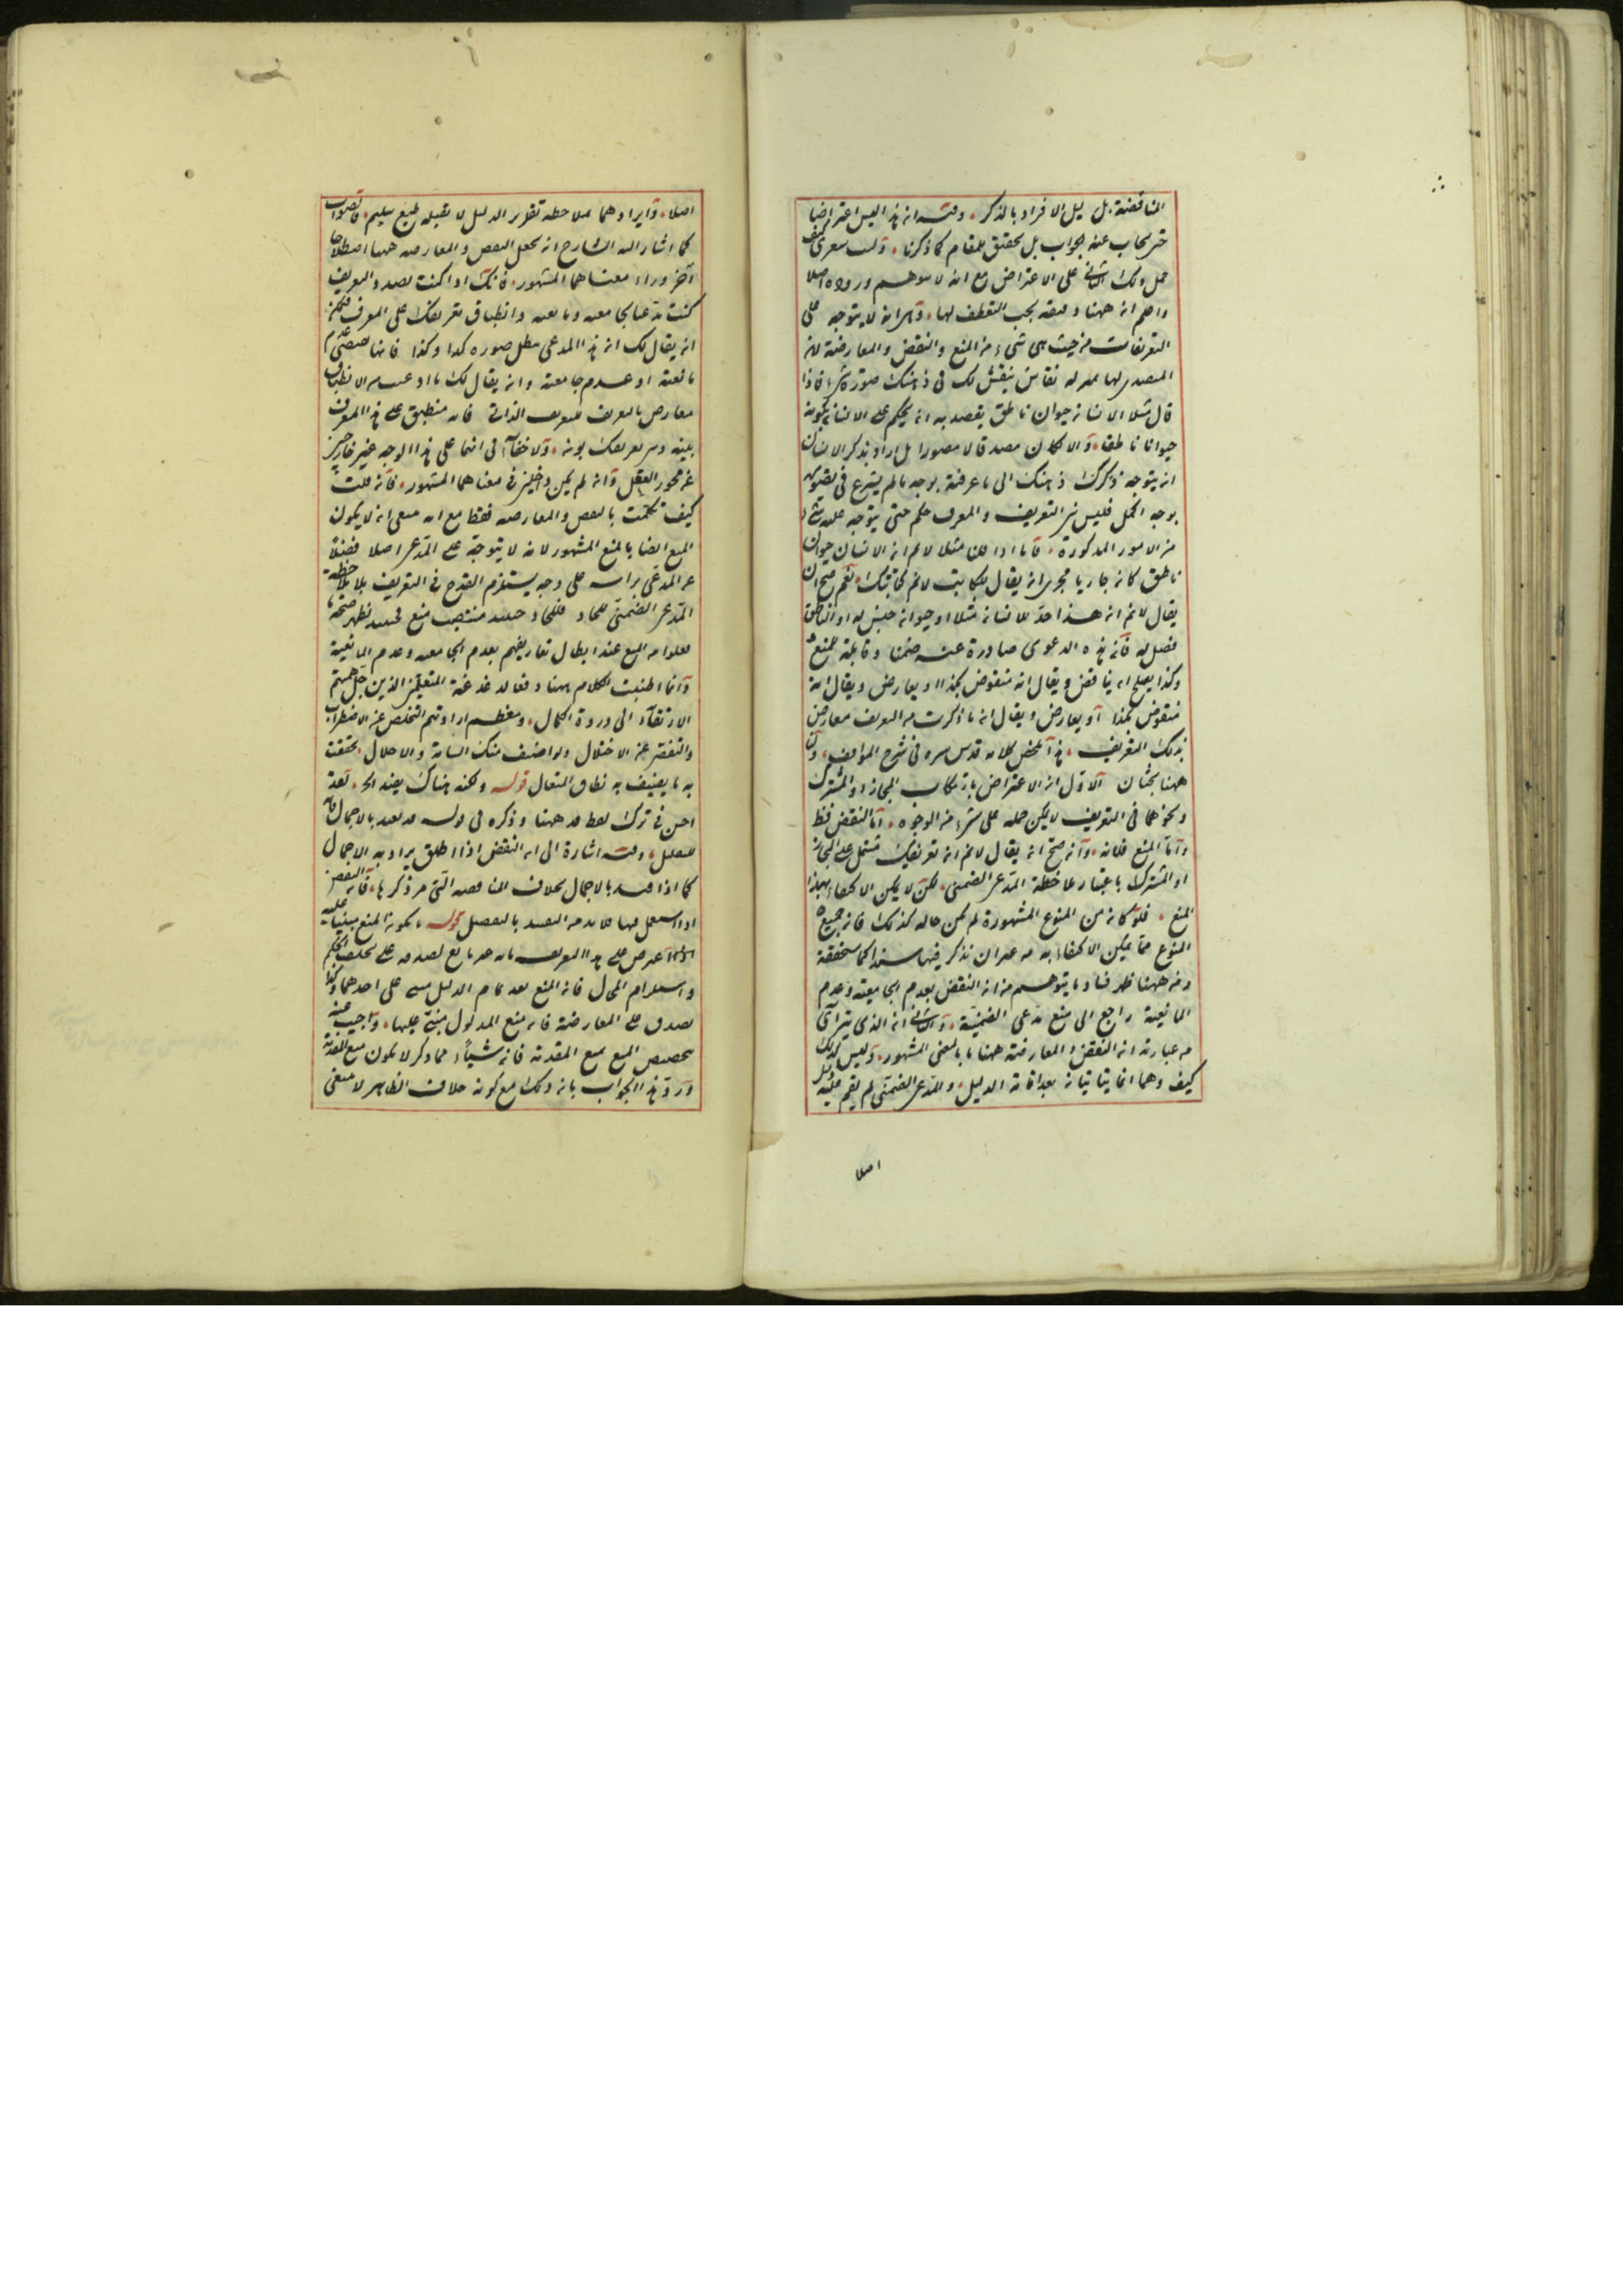 المناقضة بل يل الافراد بالذكر وفيه ان هذا ليس اعتراضا
حتى يجاب عنه بجواب بل تحقيق للمقام كما ذكرنا وليت شعرى كيف
حمل ذلك الثانى على الاعتراض مع انه لا يتوهم وروده اصلا
واعلم ان ههنا دقيقة يجب التفطن لها وهى انه لا يتوجه على
التعريفات من حيث هى شىء من المنع والنقض والمعارضة لان
المتصدى لها بمنزلة نقاش ينقش لك فى ذهنك صورة شىء فاذا
قال مثلا الانسان حيوان ناطق يقصد به ان يحكم على الانسان بكونه
حيوانا ناطقا والا لكان مصدقا لا مصورا بل اراد بذكر الانسان
ان يتوجه ذهنك الى ما عرفته بوجه ما ثم يشرع فى تصويره
بوجه اكمل فليس بين التعريف والمعرف حكم حتى يتوجه عليه شىء
من الامور المذكورة فاما اذا قلت مثلا لا نم ان الانسان حيوان
ناطق كان جاريا مجرى ان يقال للكاتب لا نم كتابتك نعم صح ان
يقال لا نم ان هذا حد للانسان مثلا او حيوان جنس له او الناطق
فصل له فان هذه الدعوى صادرة عنه ضمنا وقابلة للمنع
وكذا يصلح ان يناقض ويقال انه منقوض بكذا او يعارض ويقال انه
منقوض بكذا او يعارض ويقال ان ما ذكرت من التعريف معارض
بذلك التعريف هذا ملخص كلامه قدس سره فى شرح المواقف
ههنا بحثان الاول ان الاعتراض بارتكاب المجاز او المشترك
ونحوهما فى التعريف لا يمكن حمله على شىء من الوجوه اما النقض فظ
واما المنع فلانه وان صح ان يقال لا نم ان تعريفك مشتمل على المجاز
او المشترك باعتبار ملاحظة المدعى الضمنى لكن لا يمكن الاكتفاء بهذا
المنع فلو كان من المنوع المشهورة لم يكن حاله كذلك فان جميع
المنوع مما يمكن الاكتفاء به من غير ان نذكر فيها سندا كما ستحققه
ومن ههنا ظهر فساد ما يتوهم من ان النقض بعدم الجامعية وعدم
المانعية راجع الى منع مدعى الضمنية والثانى ان الذى يترآى
من عبارته ان النقض والمعارضة ههنا بالمعنى المشهور وليس كذلك
كيف وهما انما يتاتيان بعد اقامة الدليل والمدعى الضمنى لم يقم عليه دليل
اصلا
اصلا وايرادهما بملاحظة تقدير الدليل لا يقبله طبع سليم فالصواب
كما اشار اليه الشارح ان يجعل النقض والمعارضة ههنا اصطلاحا
آخر وراء معناهما المشهور فانك اذا كنت بصدد التعريف
كنت مدعيا بجامعيته ومانعيته وانطباق تعريفك على المعرف فيمكن
ان يقال لك ان هذا المدعى يبطل صورة كذا وكذا فانها تقتضى عدم
مانعيته او عدم جامعيته وان يقال لك ما ادعيت من الانطباق
معارض بالتعريف الذاتى فانه منطبق على هذا المعرف
بينه وبين تعريفك بون ولا خفاء فى انهما على هذا الوجه غير خارجين
عن محور العقل وان لم يكن داخلين فى معناهما المشهور فان قلت
كيف تكلمت بالنقض والمعارضة فقط مع انه ينبغى ان لا يكون
المنع ايضا بالمنع المشهور لانه لا يتوجه على المدعى اصلا فضلا
عن المدعى براسه على وجه يستلزم القدح فى التعريف بلا ملاحظة
وانما اطنبت الكلام ههنا دفعا لدغدغة المتعلمين الذين جل همتهم
الارتقاء الى ذروة الكمال ومعظم ارادتهم التخلص عن الاضطراب
به ما يضيق به نطاق المقال قوله ولكنه هناك يفيد الخ لقد
احسن فى ترك لفظ قد ههنا وذكره فى قوله قد يقيد بالاجمال فانه
للتعليل وفيه اشارة الى ان النقض اذا اطلق يراد به الاجمال
كما اذا قيد بالاجمال بخلاف المناقضة التى مر ذكرها فان النقض
اذا استعمل فيها فلابد من التقييد بالتفصيل قوله بكونه المنع مبنيا عليه
اعترض على هذا التعريف بانه غير مانع لصدقه على تخلف الحكم
واستلزام المحال فان المنع بعد تمام الدليل مبنى على احدهما وكذا
يصدق على المعارضة فان منع المدلول مبنى عليها واجيب عنه
بتخصيص المنع بمنع المقدمة فان شيئا مما ذكر لا يكون منع المقدمة
ورد هذا الجواب بان ذلك مع كونه خلاف الظاهر لا معنى